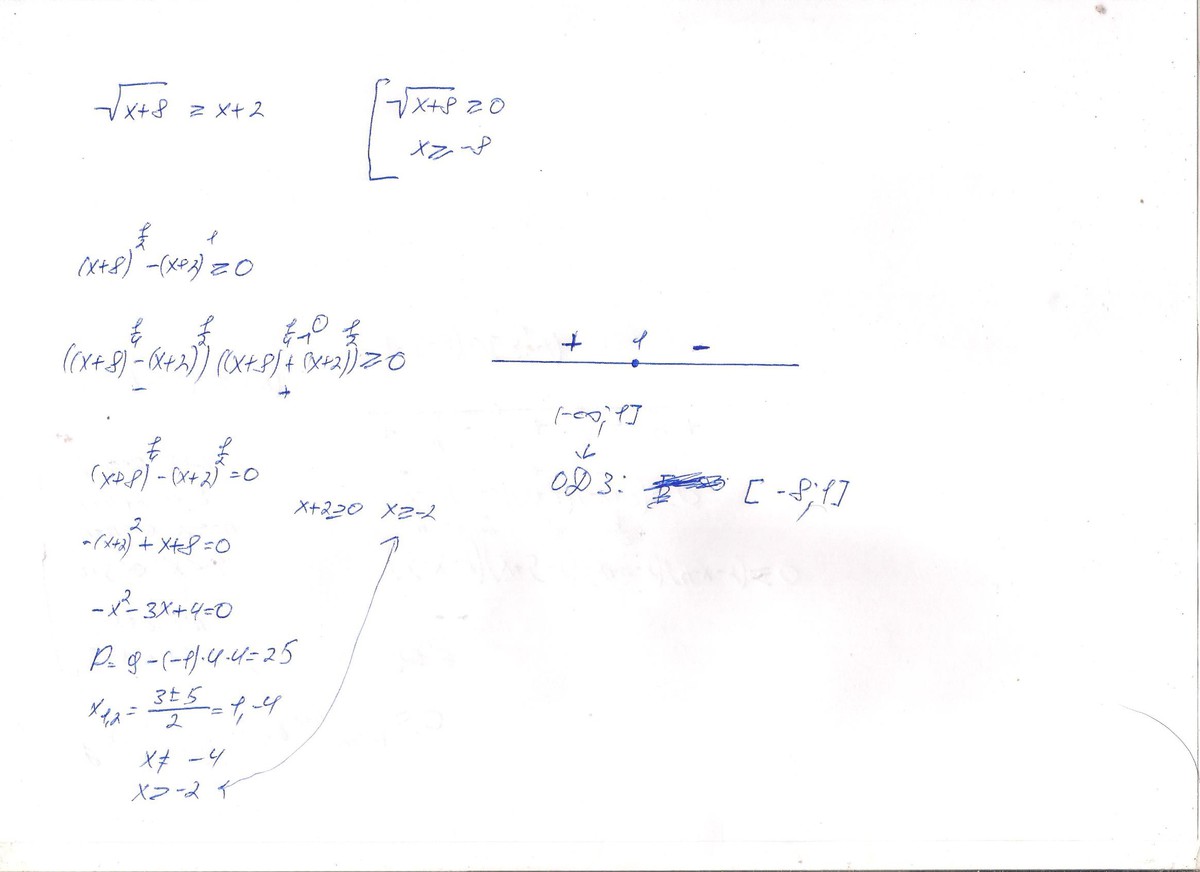 √x+8 ≥ x+2
[ √x+8 ≥ 0
x ≥ -8
(x+8)^(1/2) - (x+2)^1 ≥ 0
((x+8)^(1/4) - (x+2)^(1/2)) ((x+8)^(1/4) + (x+2)^(1/2)) ≥ 0
- +
+ 1 -
(-∞; 1]
↓
ОДЗ: [-8; 1]
(x+8)^(1/4) - (x+2)^(1/2) = 0
x+2≥0 x≥-2
-(x+2)^2 + x+8=0
-x^2 - 3x+4=0
D= 9-(-1)·4·4=25
x1,2 = (3±5)/2 = 1, -4
x ≠ -4
x ≥ -2